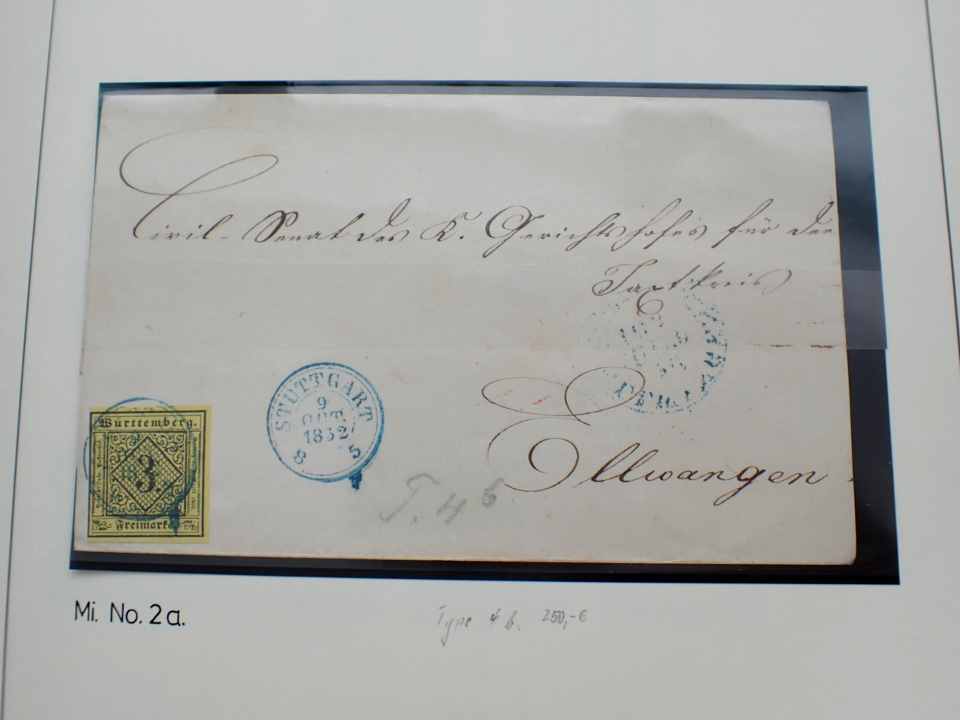 Civil-Senat des K. Gerichtshofes für den
Jaxtkreis
STUTTGART
9
OCT.
1852
8 5
Württemberg.
3
Freimarke
Ellwangen
T. 4b
Mi. No. 2a.
Type 4b. 250,-€